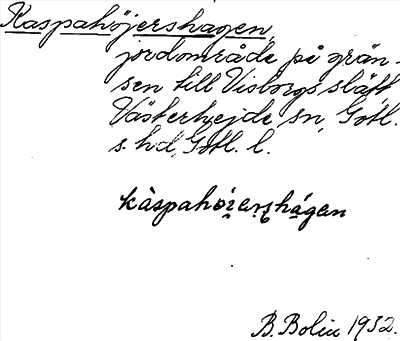 Kaspahöjershagen,
jordområde på grän-
sen till Visborgs slätt,
Västerhejde sn, Gotl.
s. hd, Gotl. l.
B. Bolin 1932.